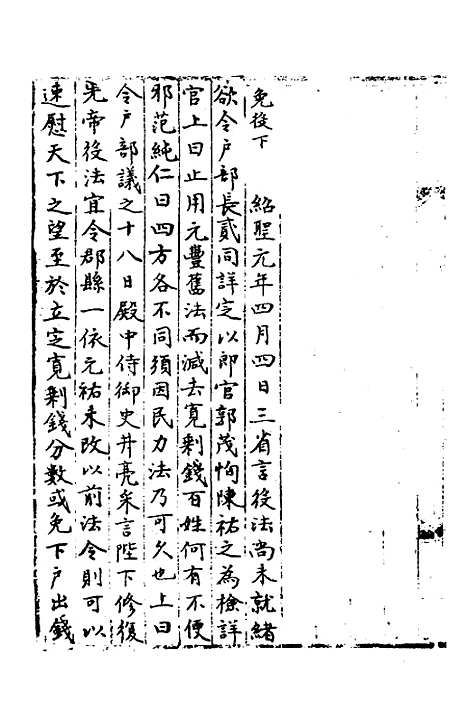 免役下　紹聖元年四月四日三省言役法尚未就緒
欲令戶部長貳同詳定以郎官郭茂恂陳祐之為檢詳
官上曰止用元豐舊法而減去寬剩錢百姓何有不便
邪范純仁曰四方各不同須因民力法乃可久也上曰
令戶部議之十八日殿中侍御史井亮采言陛下修復
先帝役法宜令郡縣一依元祐未改以前法令則可以
速慰天下之望至於立定寬剩錢分數或免下戶出錢